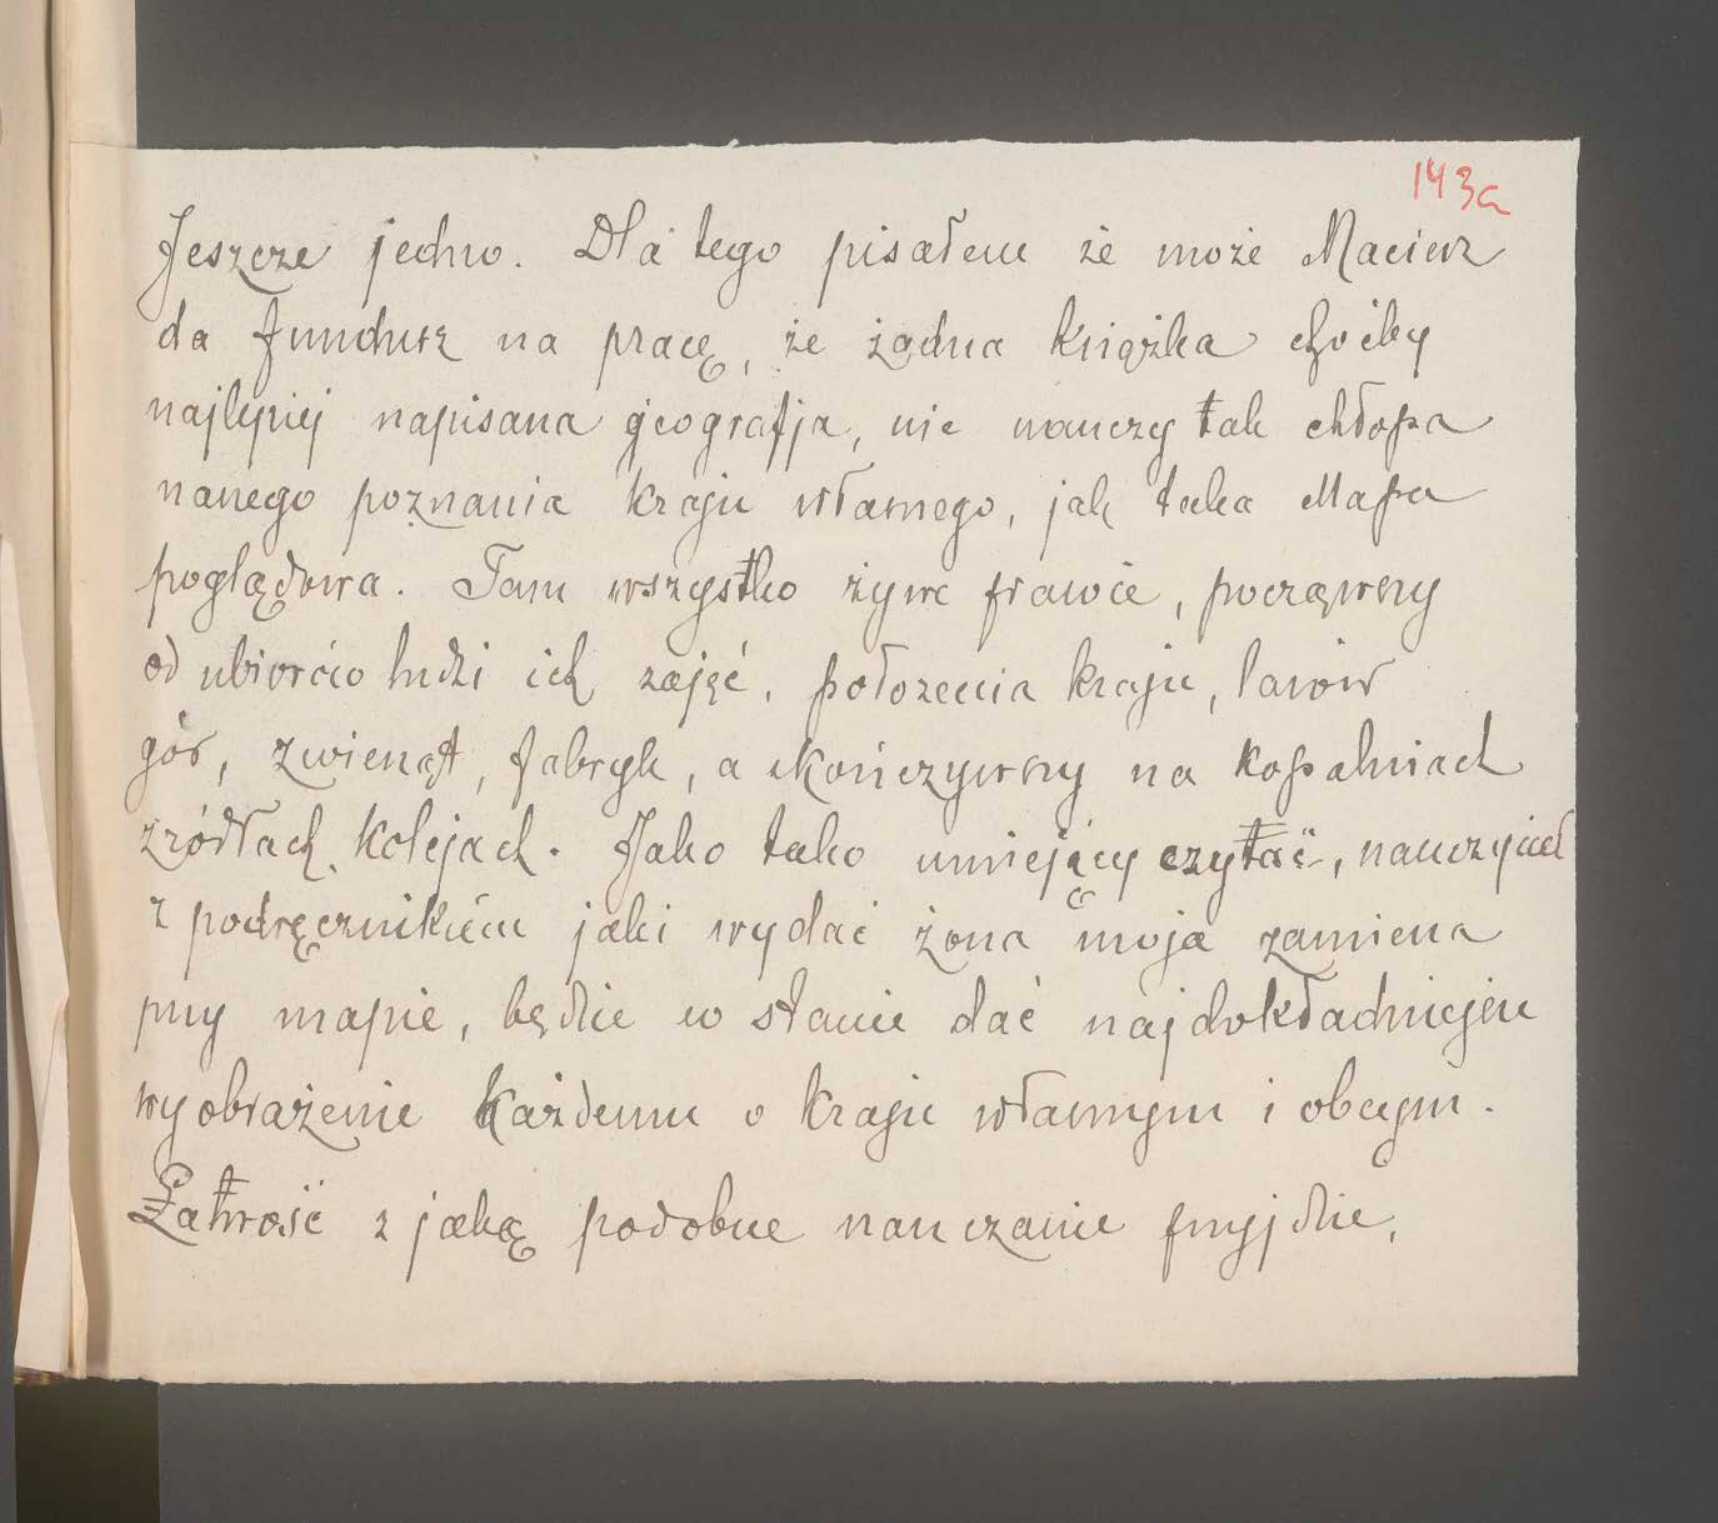 143a
Jeszcze jedno. Dla tego pisałem że może Macierz
da fundusz na pracę, że żadna książka choćby
najlepiej napisana geografja, nie nauczy tak chłopa
naszego poznania kraju własnego, jak taka Mapa
poglądowa. Tam wszystko żywe prawie, począwszy
od ubiorów ludzi ich zajęć, położenia kraju, lasów
gór, zwierząt, fabryk, a skończywszy na kopalniach
źródłach, kolejach. Jako tako umiejący czytać, nauczyciel
z podręcznikiem jaki wydać żona moja zamierza
przy mapie, będzie w stanie dać najdokładniejsze
wyobrażenie każdemu o kraju własnym i obcym.
Łatwość z jaką podobne nauczanie przyjdzie,